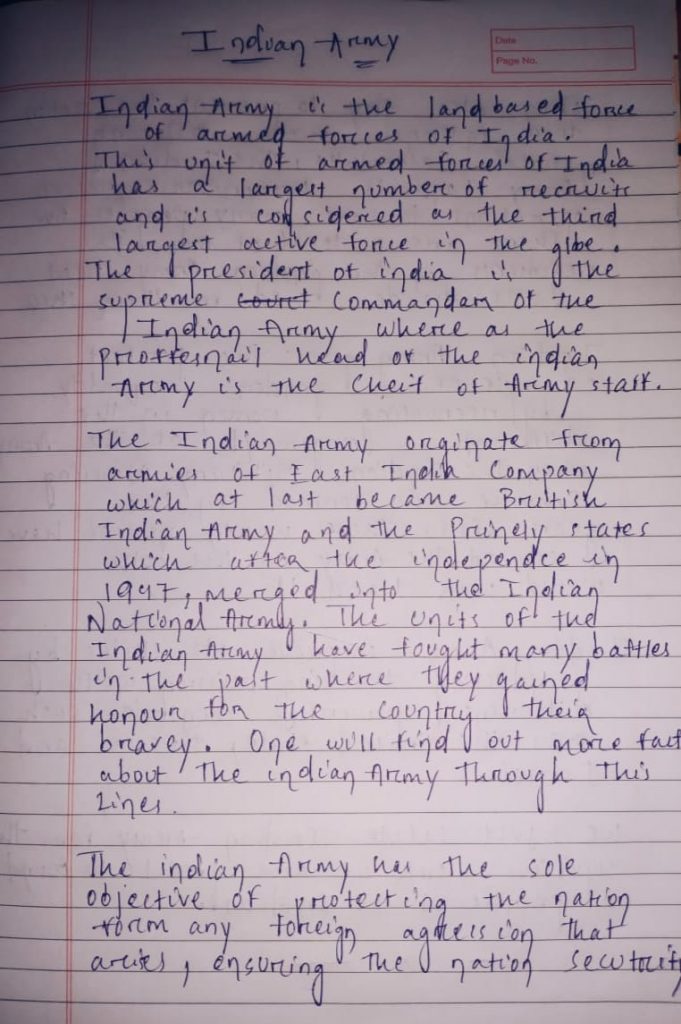 Indian Army
Date
Page No.
Indian Army is the land based force
of armed forces of India.
This unit of armed forces of India
has a largest number of recruits
and is considered as the third
largest active force in the glbe.
The president of india is the
supreme court commandar of the
Indian Army where as the
proffesnail head of the indian
Army is the Cheif of Army staff.
The Indian Army orginate from
armies of East India Company
which at last became British
Indian Army and the Prinely states
which after the independce in
1947, merged into the Indian
National Army. The units of the
Indian Army have fought many battles
in the past where they gained
honour for the country their
bravey. One will find out more fact
about The indian Army Through This
Lines.
The indian Army has the sole
objective of protecting the nation
form any foreign agression that
aries, ensuring the nation security